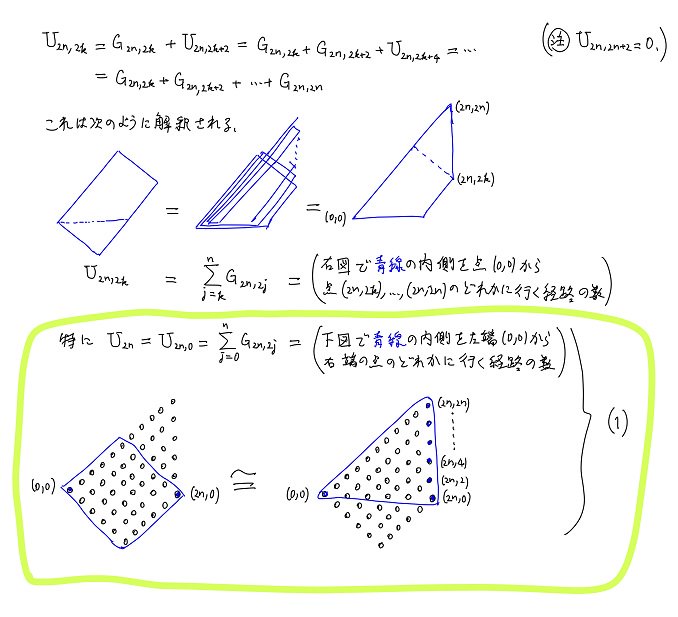 U₂ₙ,₂ₖ = G₂ₙ,₂ₖ + U₂ₙ,₂ₖ₊₂ = G₂ₙ,₂ₖ + G₂ₙ,₂ₖ₊₂ + U₂ₙ,₂ₖ₊₄ = ⋯ (㊟ U₂ₙ,₂ₙ₊₂ = 0.)
= G₂ₙ,₂ₖ + G₂ₙ,₂ₖ₊₂ + ⋯ + G₂ₙ,₂ₙ
これは次のように解釈される.
(2n,2n)
(2n,2k)
= = (0,0)
U₂ₙ,₂ₖ = ∑ⁿⱼ₌ₖ G₂ₙ,₂ⱼ = (右図で青線の内側を点(0,0)から
点(2n,2k),…,(2n,2n)のどれかに行く経路の数)
特に U₂ₙ = U₂ₙ,₀ = ∑ⁿⱼ₌₀ G₂ₙ,₂ⱼ = (下図で青線の内側を左端(0,0)から
右端の点のどれかに行く経路の数)
(1)
(0,0) (2n,0) ≅ (0,0)
(2n,2n)
(2n,4)
(2n,2)
(2n,0)